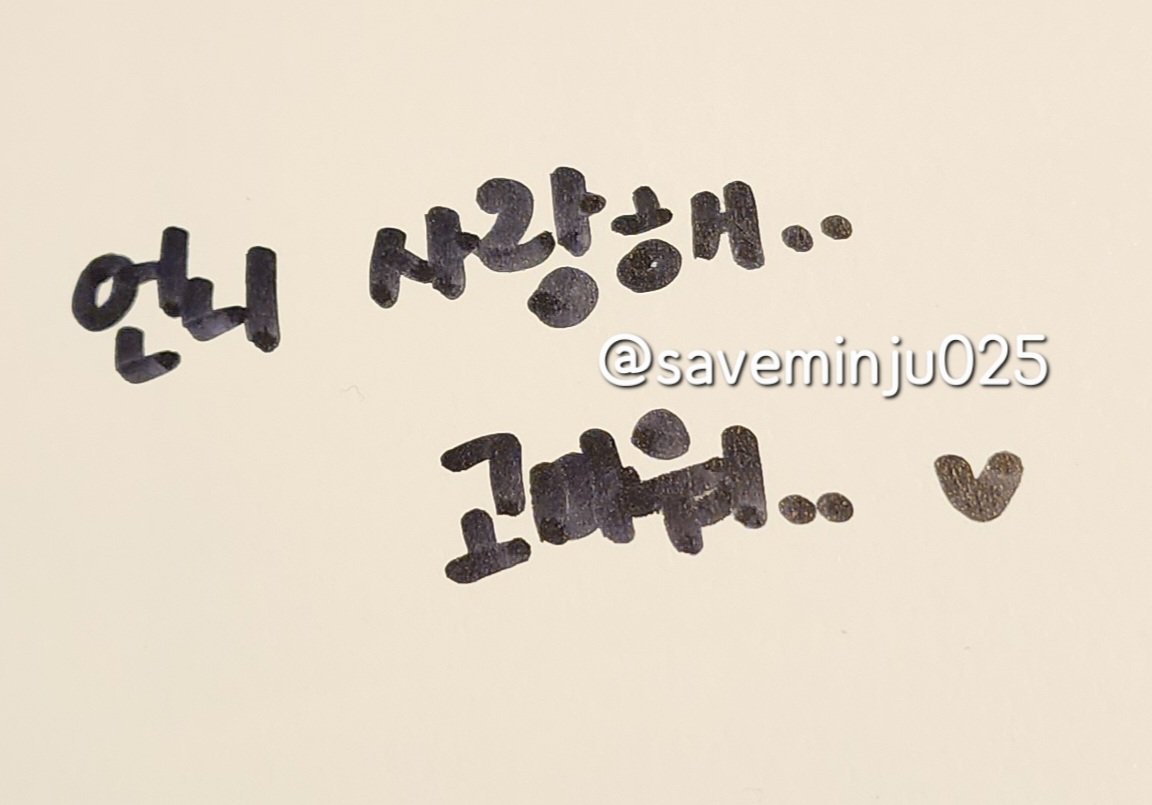 언니 사랑해..
@saveminju025
고마워.. ♥